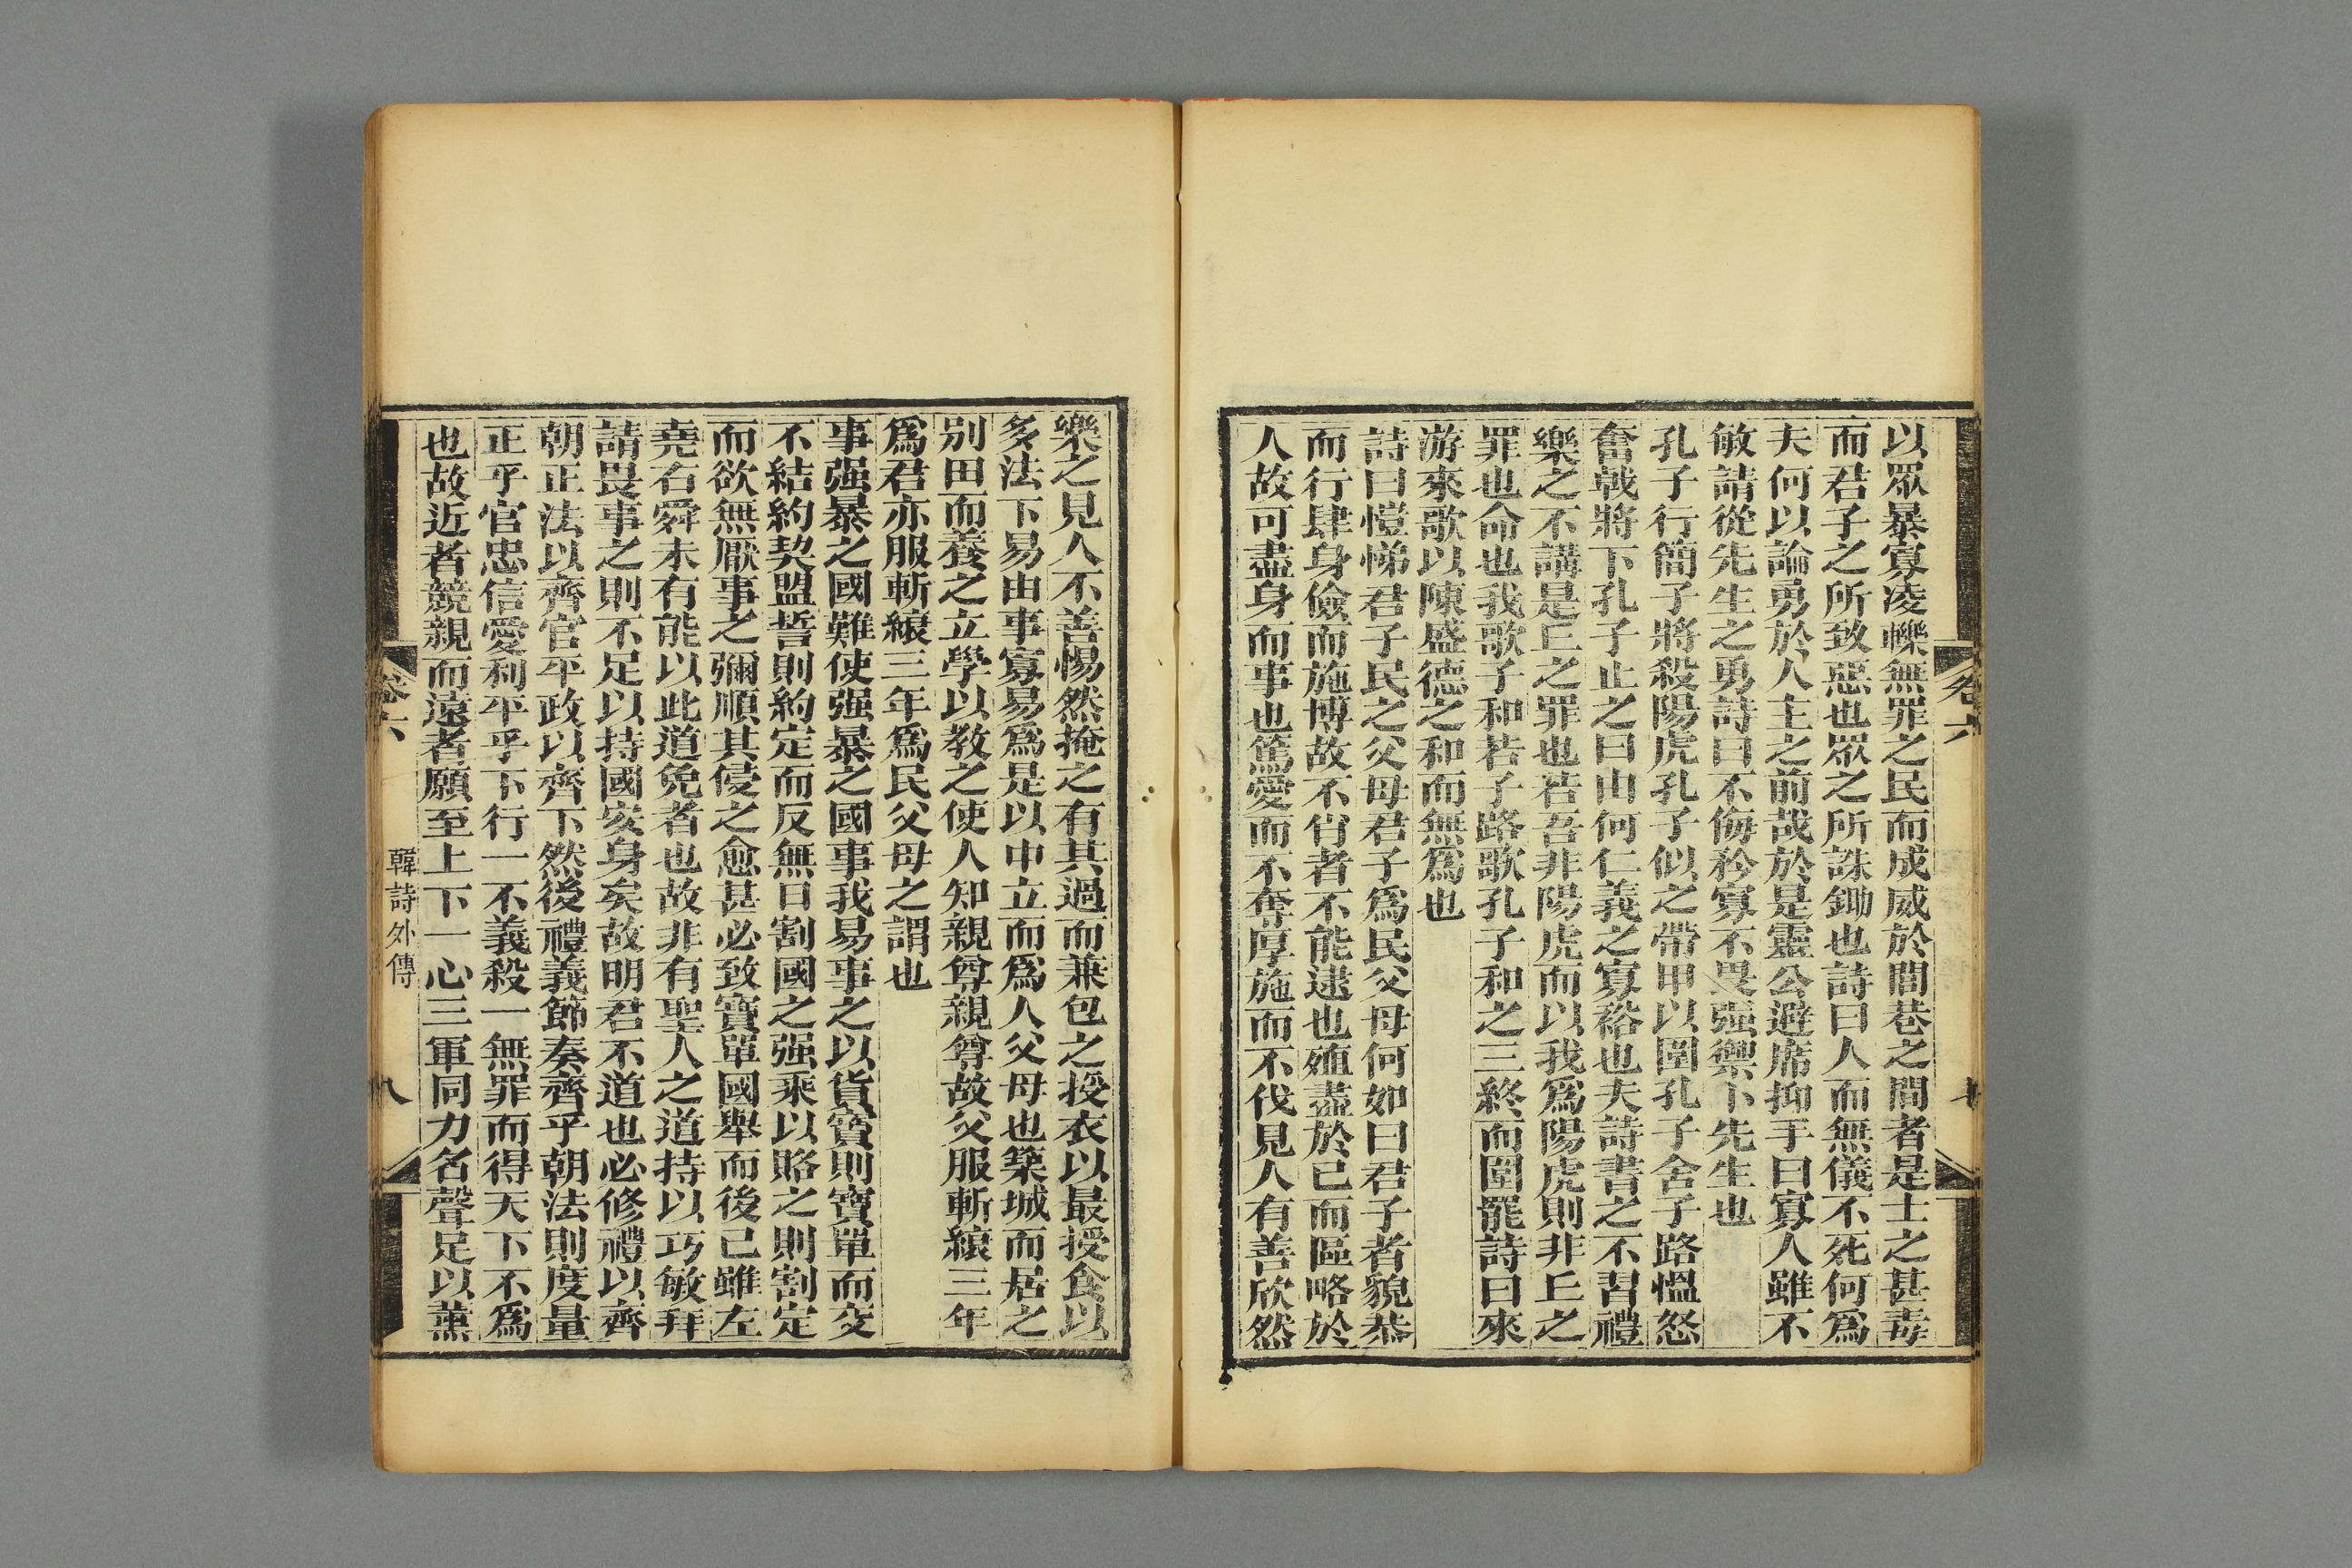 以眾暴寡凌轢無罪之民而成威於閭巷之間者是士之甚毒
而君子之所致惡也眾之所誅鋤也詩曰人而無儀不死何爲
夫何以論勇於人主之前哉於是靈公避席抑手曰寡人雖不
敏請從先生之勇詩曰不侮矜寡不畏强禦卜先生也
孔子行簡子將殺陽虎孔子似之帶甲以圍孔子舍子路慍怒
奮戟將下孔子止之曰由何仁義之寡裕也夫詩書之不習禮
樂之不講是丘之罪也若吾非陽虎而以我爲陽虎則非丘之
罪也命也我歌子和若子路歌孔子和之三終而圍罷詩曰來
游來歌以陳盛德之和而無爲也
詩曰愷悌君子民之父母君子爲民父母何如曰君子者貌恭
而行肆身儉而施博故不肖者不能逮也殖盡於已而區略於
人故可盡身而事也篤愛而不奪厚施而不伐見人有善欣然
卷六
樂之見人不善惕然掩之有其過而兼包之授衣以最授食以
多法下易由事寡易爲是以中立而爲人父母也築城而居之
別田而養之立學以教之使人知親尊親尊故父服斬縗三年
爲君亦服斬縗三年爲民父母之謂也
事强暴之國難使强暴之國事我易事之以貨寶則寶單而交
不結約契盟誓則約定而反無日割國之强乘以賂之則割定
而欲無厭事之彌順其侵之愈甚必致寶單國舉而後已雖左
堯右舜未有能以此道免者也故非有聖人之道持以巧敏拜
請畏事之則不足以持國安身矣故明君不道也必修禮以齊
朝正法以齊官平政以齊下然後禮義節奏齊乎朝法則度量
正乎官忠信愛利平乎下行一不義殺一無罪而得天下不爲
也故近者競親而遠者願至上下一心三軍同力名聲足以薰
卷六
韓詩外傳
八